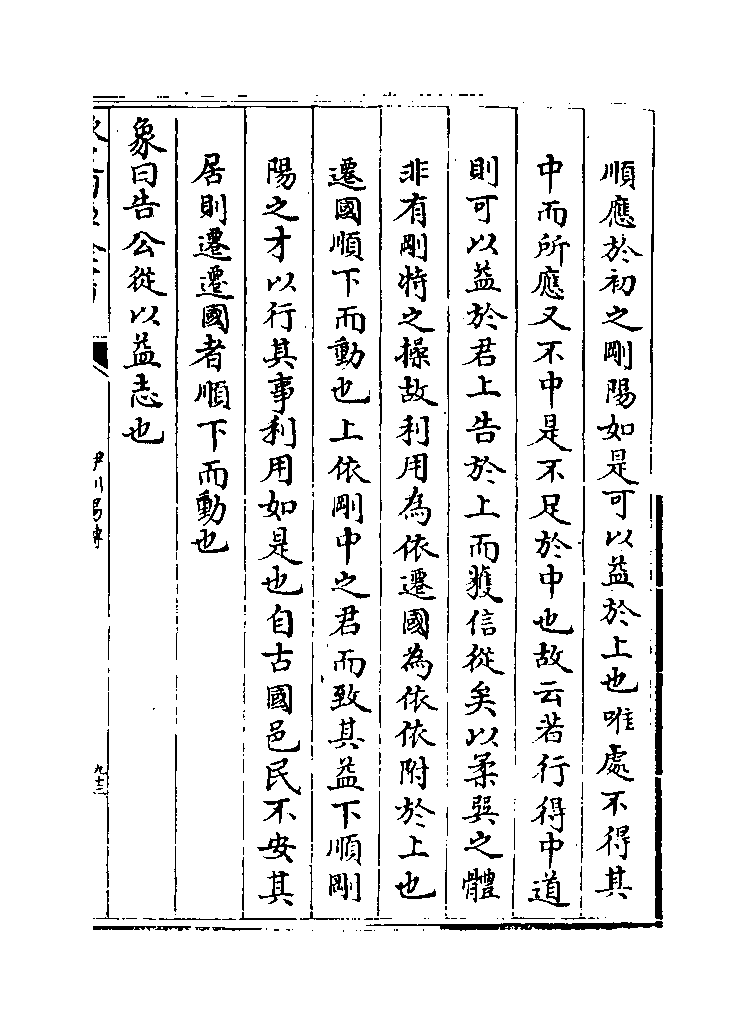 順應於初之剛陽如是可以益於上也唯處不得其
中而所應又不中是不足於中也故云若行得中道
則可以益於君上告於上而獲信從矣以柔巽之體
非有剛特之操故利用為依遷國為依依附於上也
遷國順下而動也上依剛中之君而致其益下順剛
陽之才以行其事利用如是也自古國邑民不安其
居則遷遷國者順下而動也
象曰告公從以益志也
伊川易傳
九十三